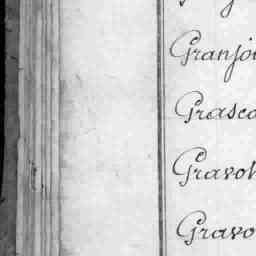 Granjou
Grasco
Gravol
Gravo